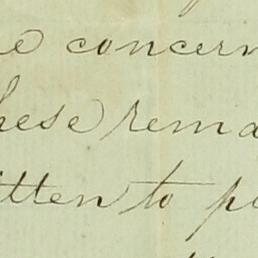 e concern
hese rema
itten to p